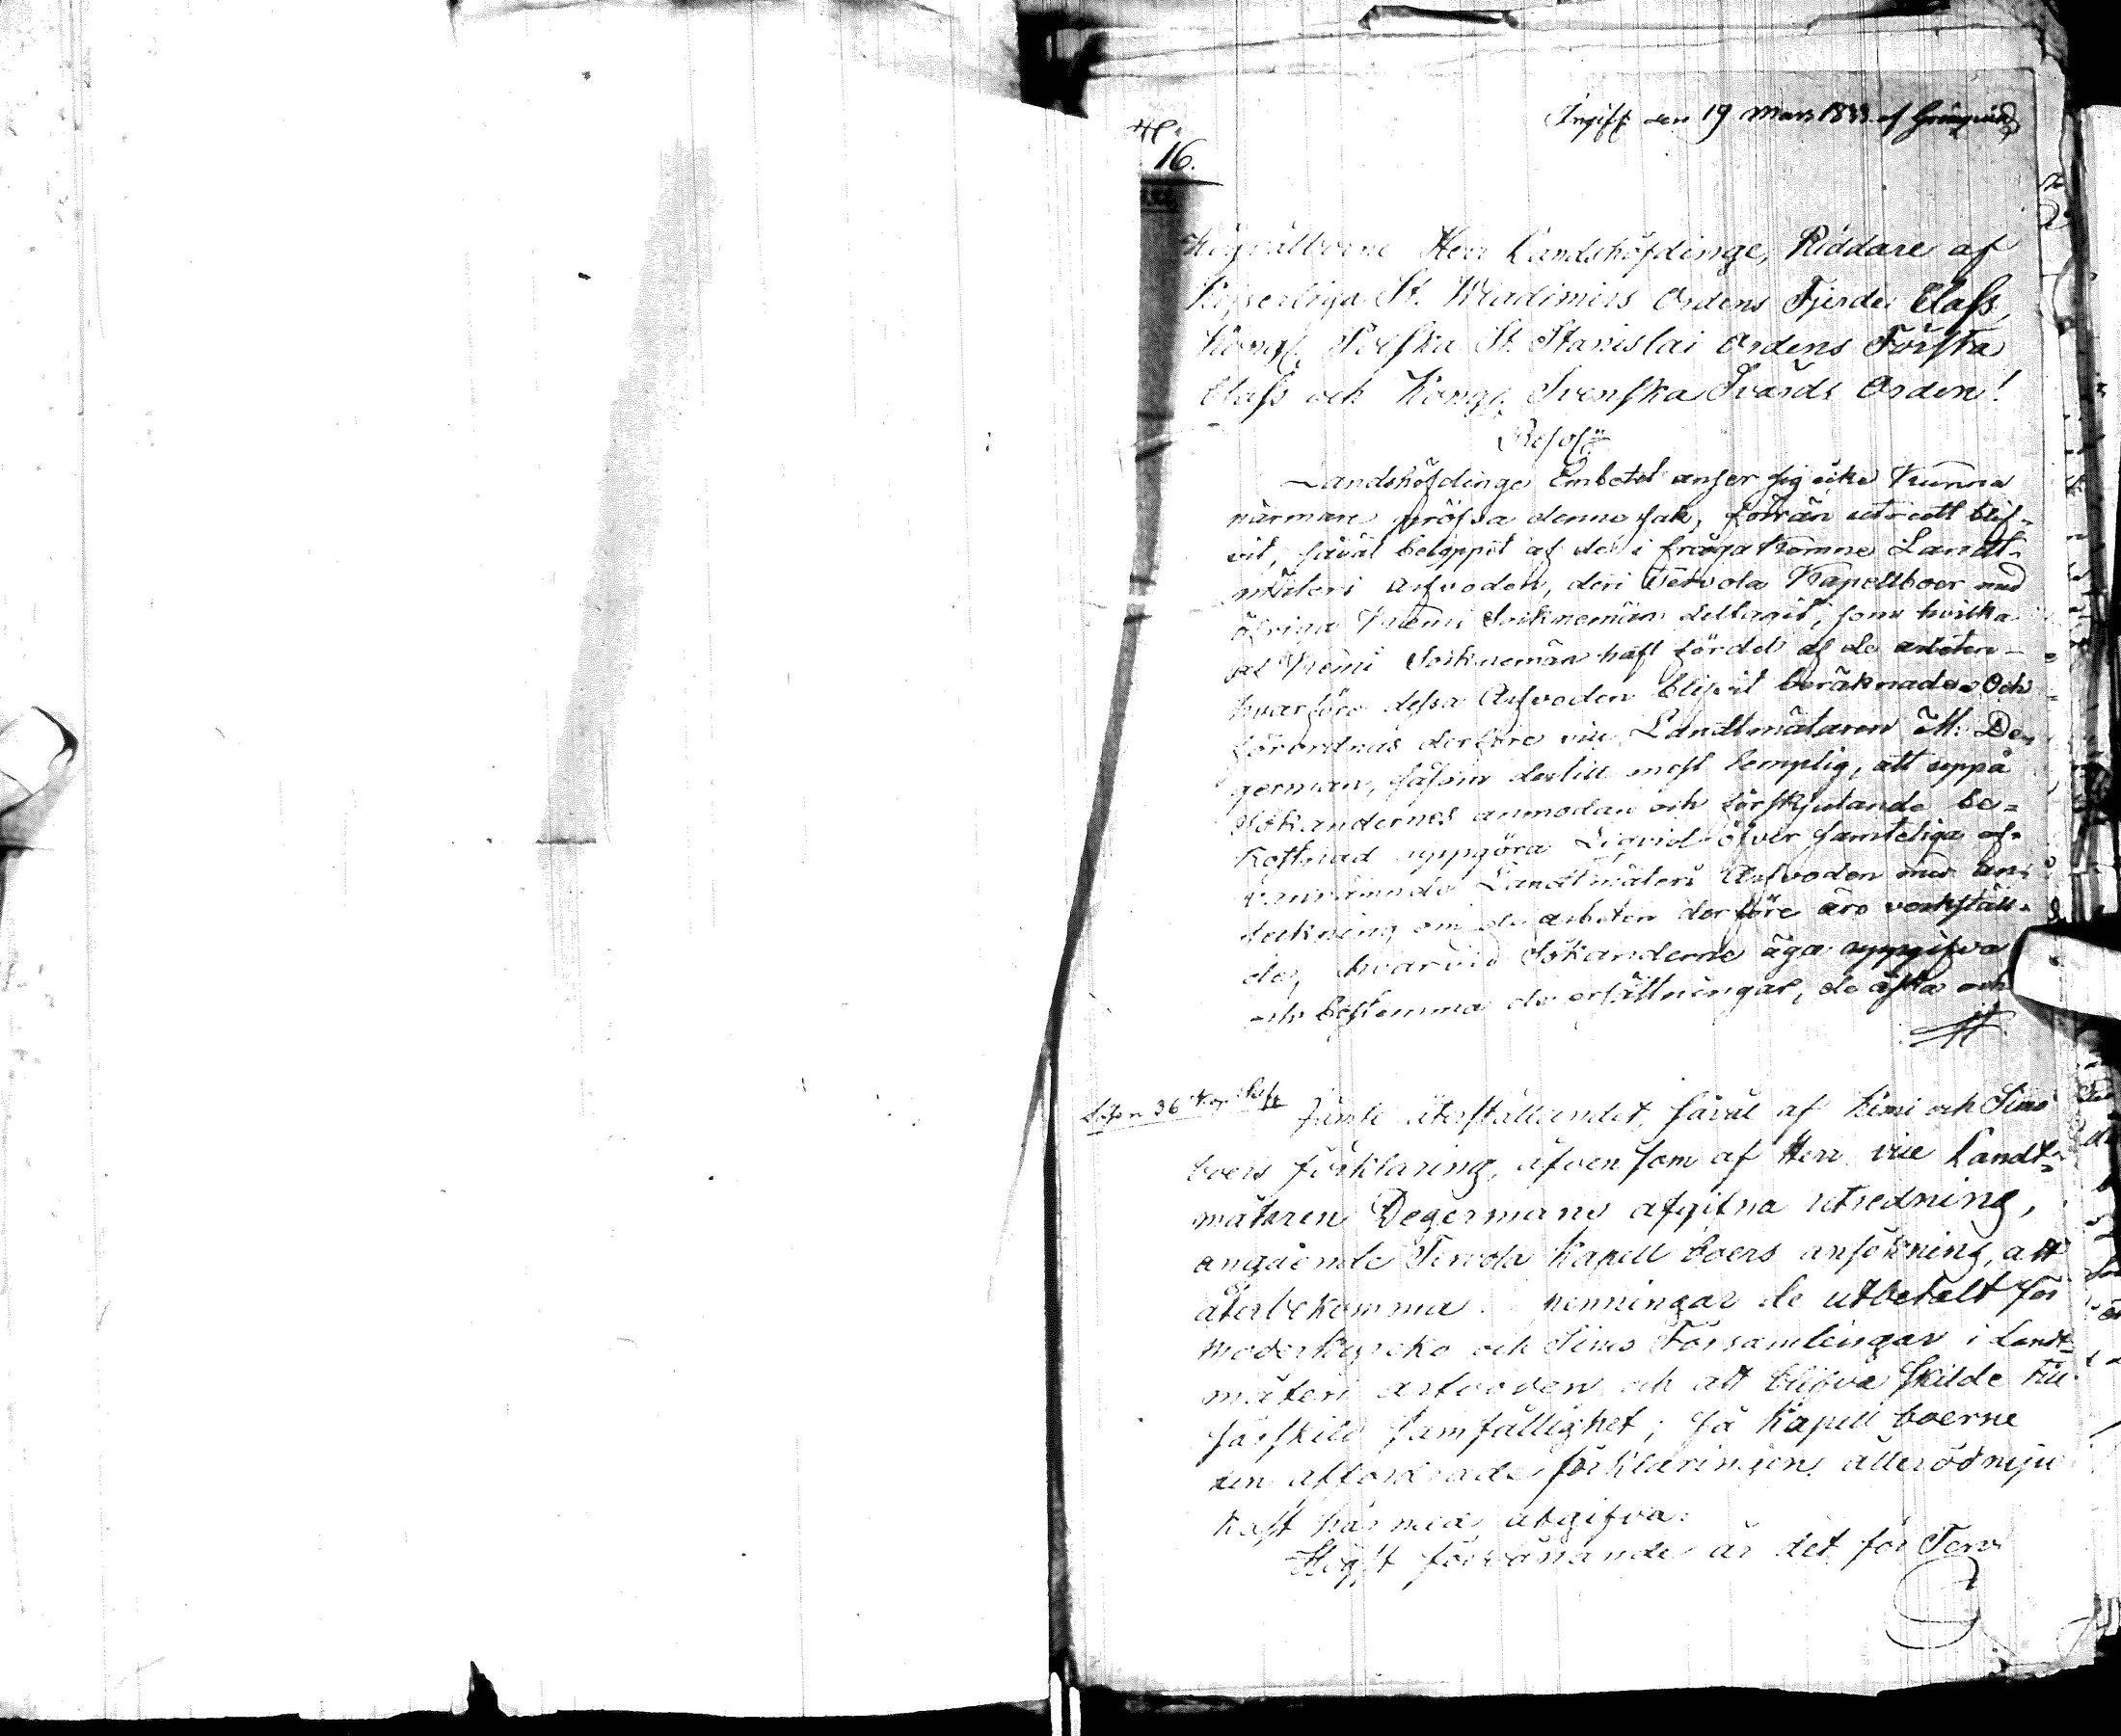 Ingift den 19 Mars 1833 af
16.
Högvälborne Herr Landshöfdinge, Riddare af
Kejserliga St. Wladimirs Ordens Fjerde Class,
Kongl. Polska St. Stanislai Ordens Första
Class och Kongl. Svenska Svärds Orden!
Resol:
Landshöfdinge Embetet anser sig icke kunna
närmare pröfva denne sak, förrän utredt blif-
vit, såväl beloppet af de i fråga komne Landt-
mäteri arfvoden, deri Tervola Kapellboer med
öfriga Kemi Socknemän deltagit, som hvilka
af Kemi Socknemän haft fördel af de arbeten
hvarföre dessa Arfvoden blifvit beräknade. Och
förordnas derföre vice Landtmätaren M. De-
german, såsom dertill mest lemplig, att uppå
Sökandernes anmodan och förskjutande be-
kostnad uppgöra Liqvid öfver samteliga of-
vannämnde Landtmäteri Arfvoden med an-
teckning om de arbeten derföre äro verkstäl-
de, hvarvid Sökanderne äga uppgifva
och bestemma de ersättningar, de äska och
Jemte återställandet, såväl af Kemi och Simo
boers förklaring, äfvensom af Herr vice Landt-
mätaren Degermans afgifna utredning,
angående Tervola Kapell boers ansökning, att
återbekomma penningar de utbetalt för
Moderkyrko och Simo Församlingar i Landt-
mäteri arfvoden och att blifva skilde till
särskild samfällighet; få Kapell boerne
den affordrade förklaringen allerödmju
kast härmed afgifva:
Högst förvånande är det för Terv